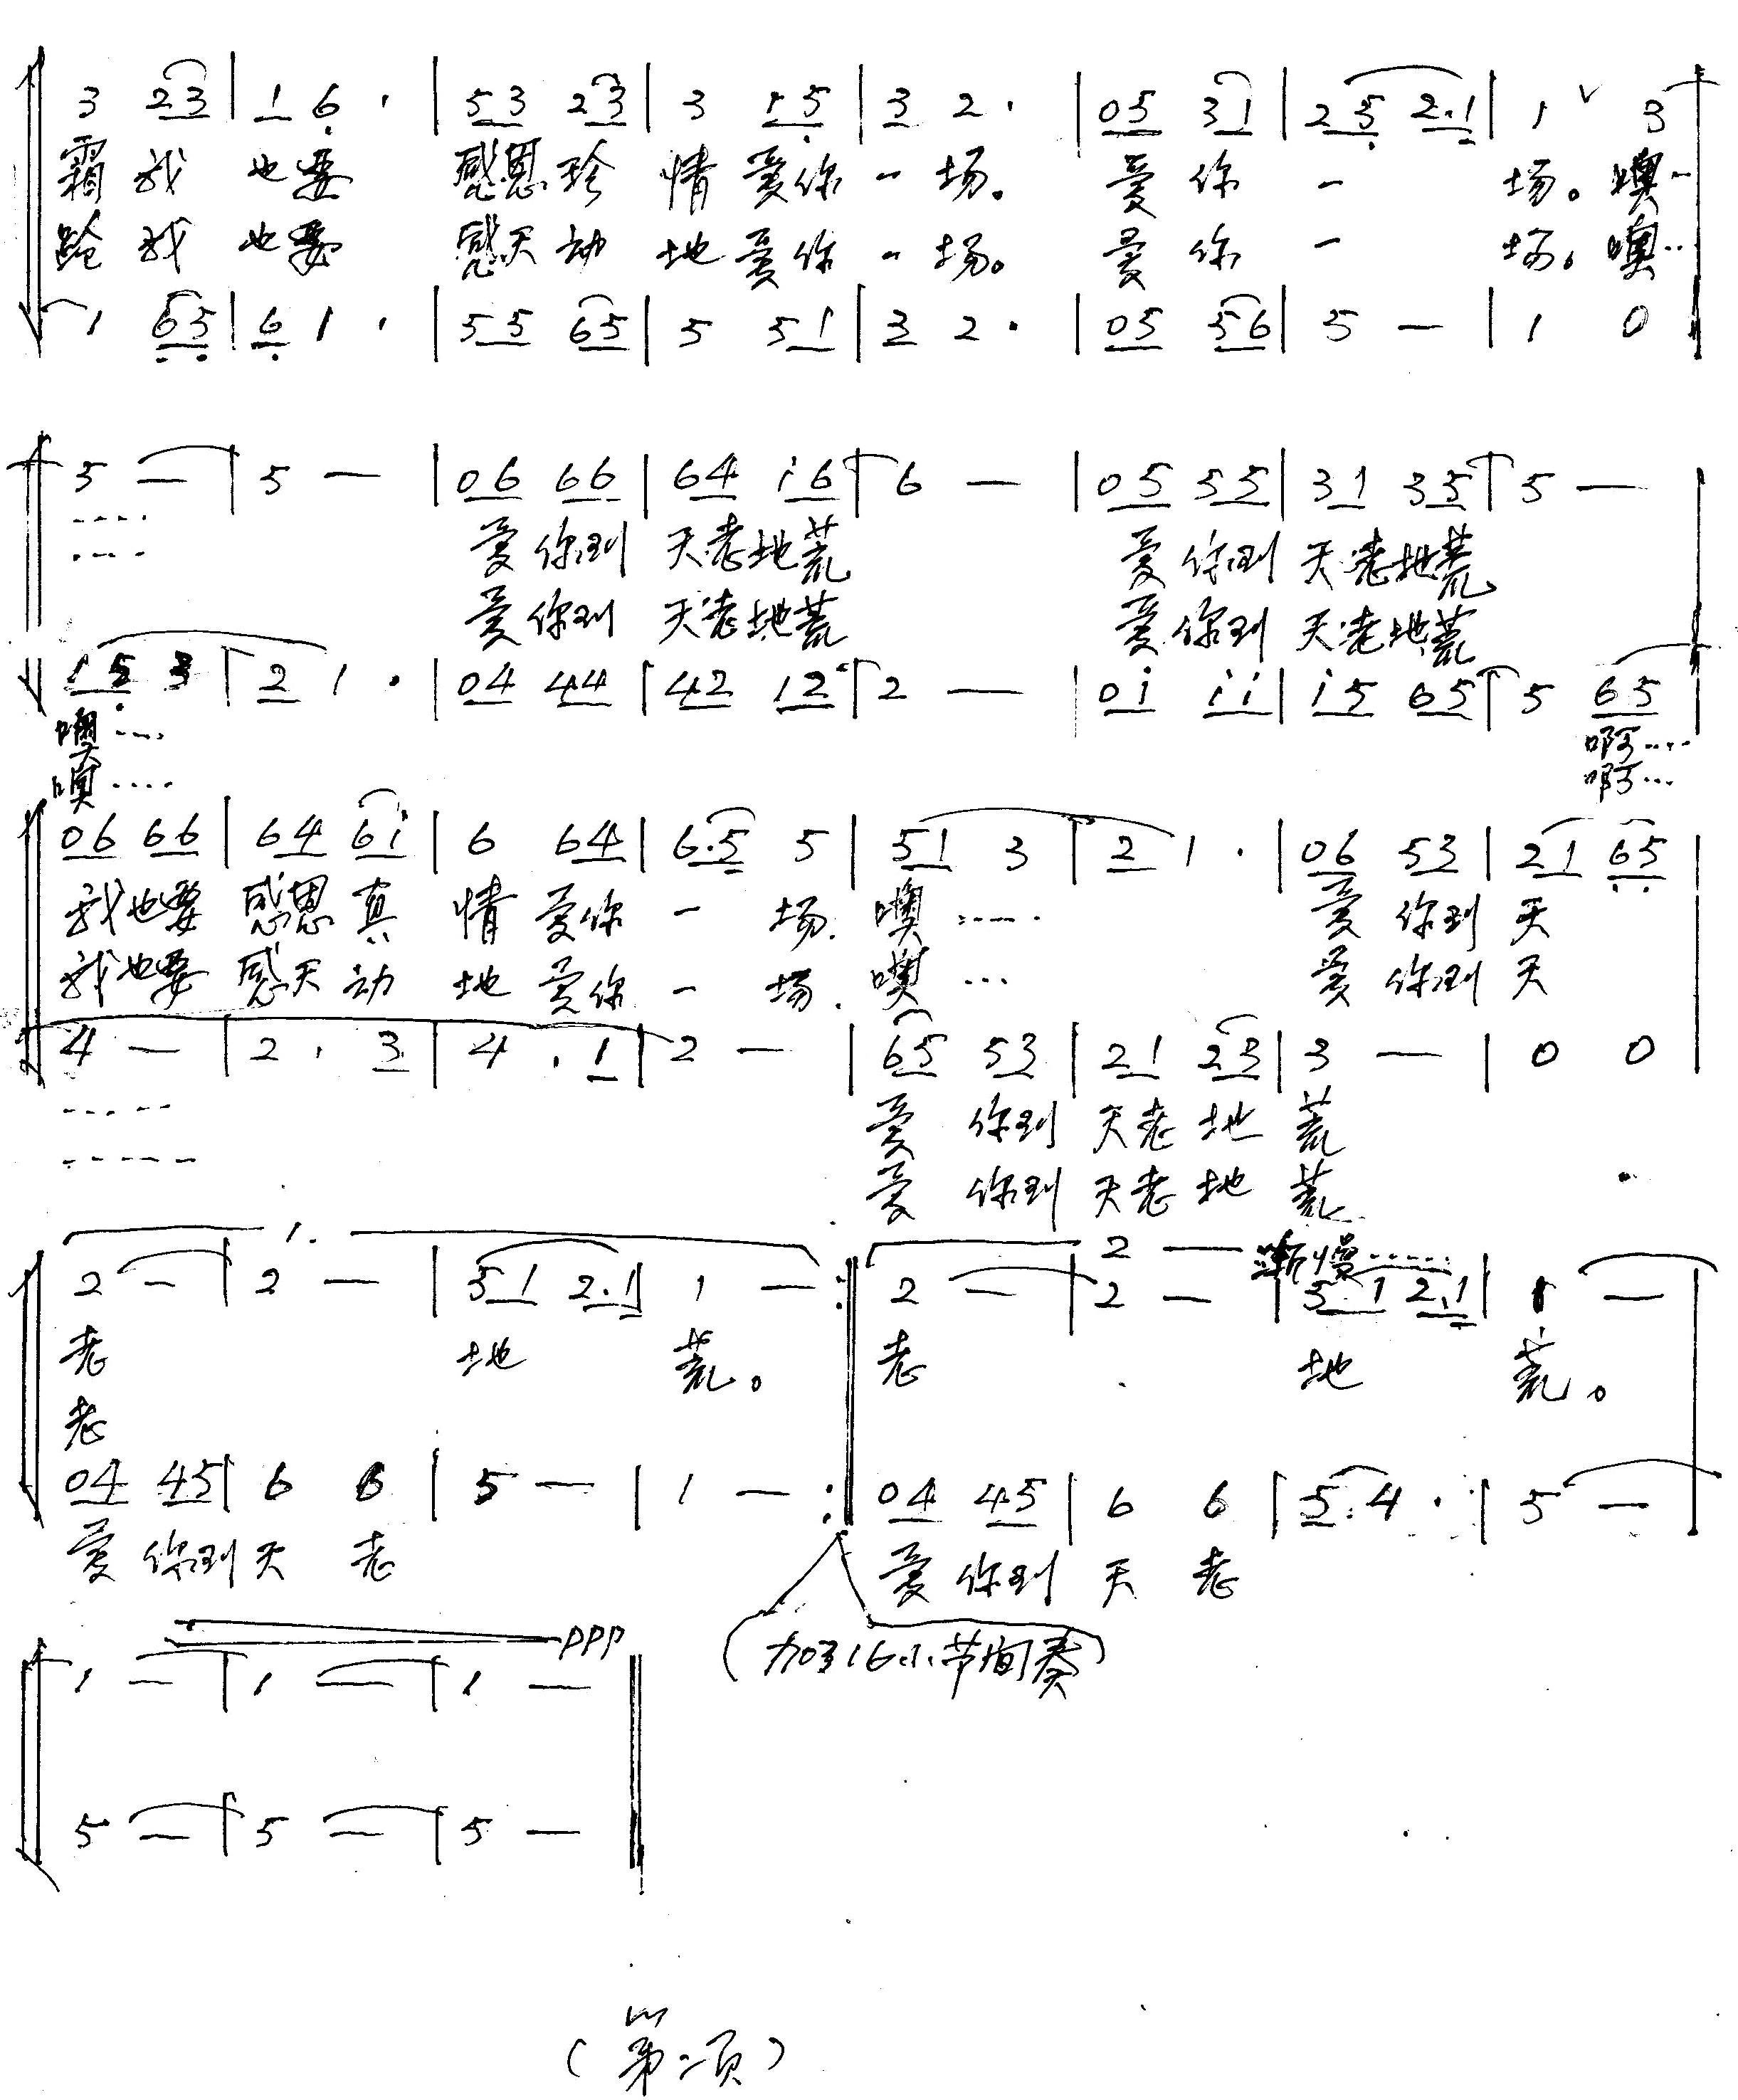 3 23 | 1 6 · | 53 23 | 3 15 | 3 2 · | 05 31 | 25 2.1 | 1 ∨ 3
霜 我 也要 感恩珍 情 爱你 一 场。 爱 你 一 场。噢…
跄 我 也要 感天动 地 爱你 一 场。 爱 你 一 场。噢…
1 65 | 6 1 · | 55 65 | 5 51 | 3 2 · | 05 56 | 5 — | 1 0
5 — | 5 — | 06 66 | 64 i6 | 6 — | 05 55 | 31 35 | 5 —
…… 爱 你到 天老地荒 爱 你到 天老地荒
…… 爱 你到 天老地荒 爱 你到 天老地荒
15 3 | 2 1 · | 04 44 | 42 12 | 2 — | 0i ii | i5 65 | 5 65
噢…… 啊……
噢…… 啊……
06 66 | 64 6i | 6 64 | 6.5 5 | 51 3 | 2 1 · | 06 53 | 21 65
我也要 感恩真 情 爱你 一 场. 噢…… 爱 你到 天
我也要 感天动 地 爱你 一 场. 噢… 爱 你到 天
4 — | 2 · 3 | 4 · 1 | 2 — | 65 53 | 21 23 | 3 — | 0 0
…… 爱 你到 天老 地 荒
…… 爱 你到 天老 地 荒
1. 2 渐慢……
2 — | 2 — | 51 2.1 | 1 — :‖ 2 — | 2 — | 51 2.1 | 1 —
老 地 荒。 老 地 荒。
老
04 45 | 6 6 | 5 — | 1 — :‖ 04 45 | 6 6 | 5 4 · | 5 —
爱 你到 天 老 爱 你到 天 老
ppp
(加了16小节间奏)
1 — | 1 — | 1 — ‖
5 — | 5 — | 5 — ‖
(第二页)